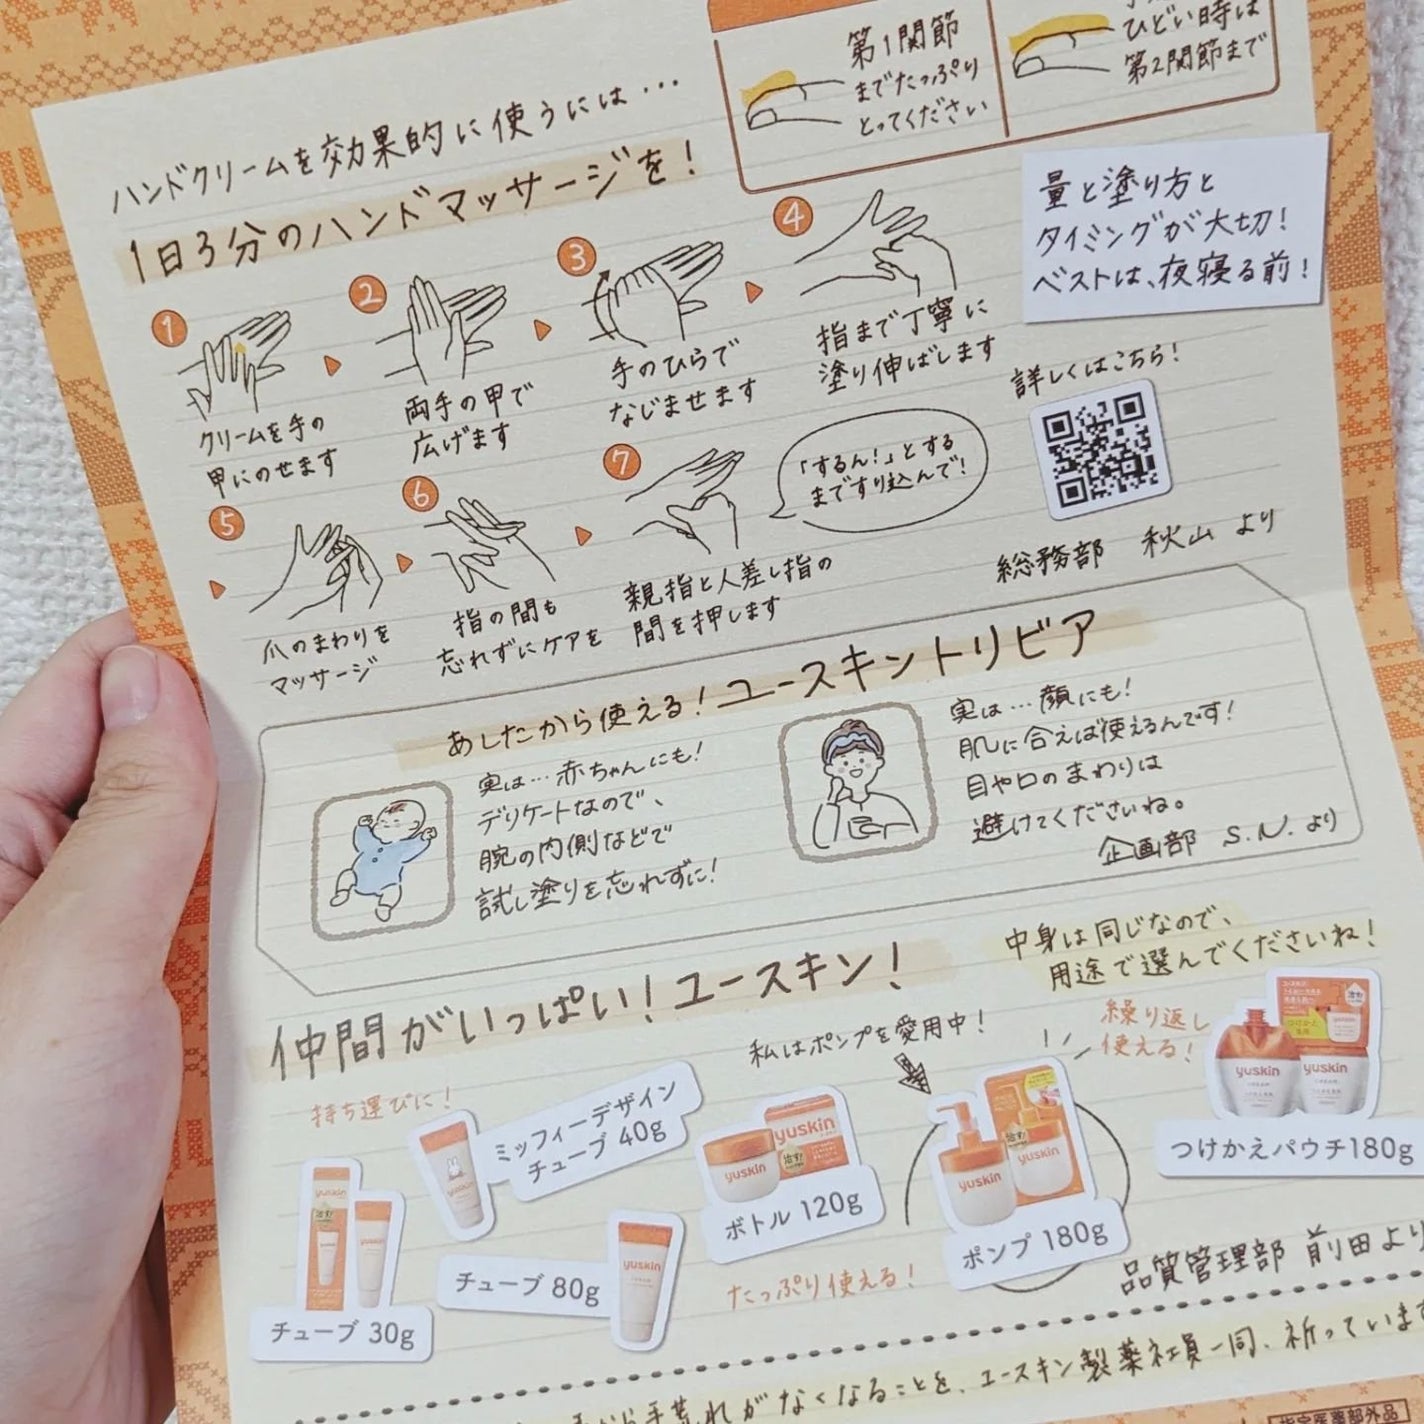 第1関節
までたっぷり
とってください
ひどい時は
第2関節まで
ハンドクリームを効果的に使うには…
1日3分のハンドマッサージを!
量と塗り方と
タイミングが大切!
ベストは、夜寝る前!
1
クリームを手の
甲にのせます
2
両手の甲で
広げます
3
手のひらで
なじませます
4
指まで丁寧に
塗り伸ばします
詳しくはこちら!
5
爪のまわりを
マッサージ
6
指の間も
忘れずにケアを
7
親指と人差し指の
間を押します
「するん!」とする
まですり込んで!
総務部 秋山 より
あしたから使える!ユースキントリビア
実は…赤ちゃんにも!
デリケートなので、
腕の内側などで
試し塗りを忘れずに!
実は…顔にも!
肌に合えば使えるんです!
目や口のまわりは
避けてくださいね。
企画部 S.N.より
仲間がいっぱい!ユースキン!
中身は同じなので、
用途で選んでくださいね!
持ち運びに!
私はポンプを愛用中!
繰り返し
使える!
ミッフィーデザイン
チューブ 40g
yuskin
チューブ 30g
yuskin
チューブ 80g
yuskin
yuskin
ボトル 120g
たっぷり使える!
yuskin
ポンプ 180g
yuskin
yuskin
つけかえパウチ180g
品質管理部 前田より
手荒れがなくなることを、ユースキン製薬社員一同、祈っています
指定医薬部外品